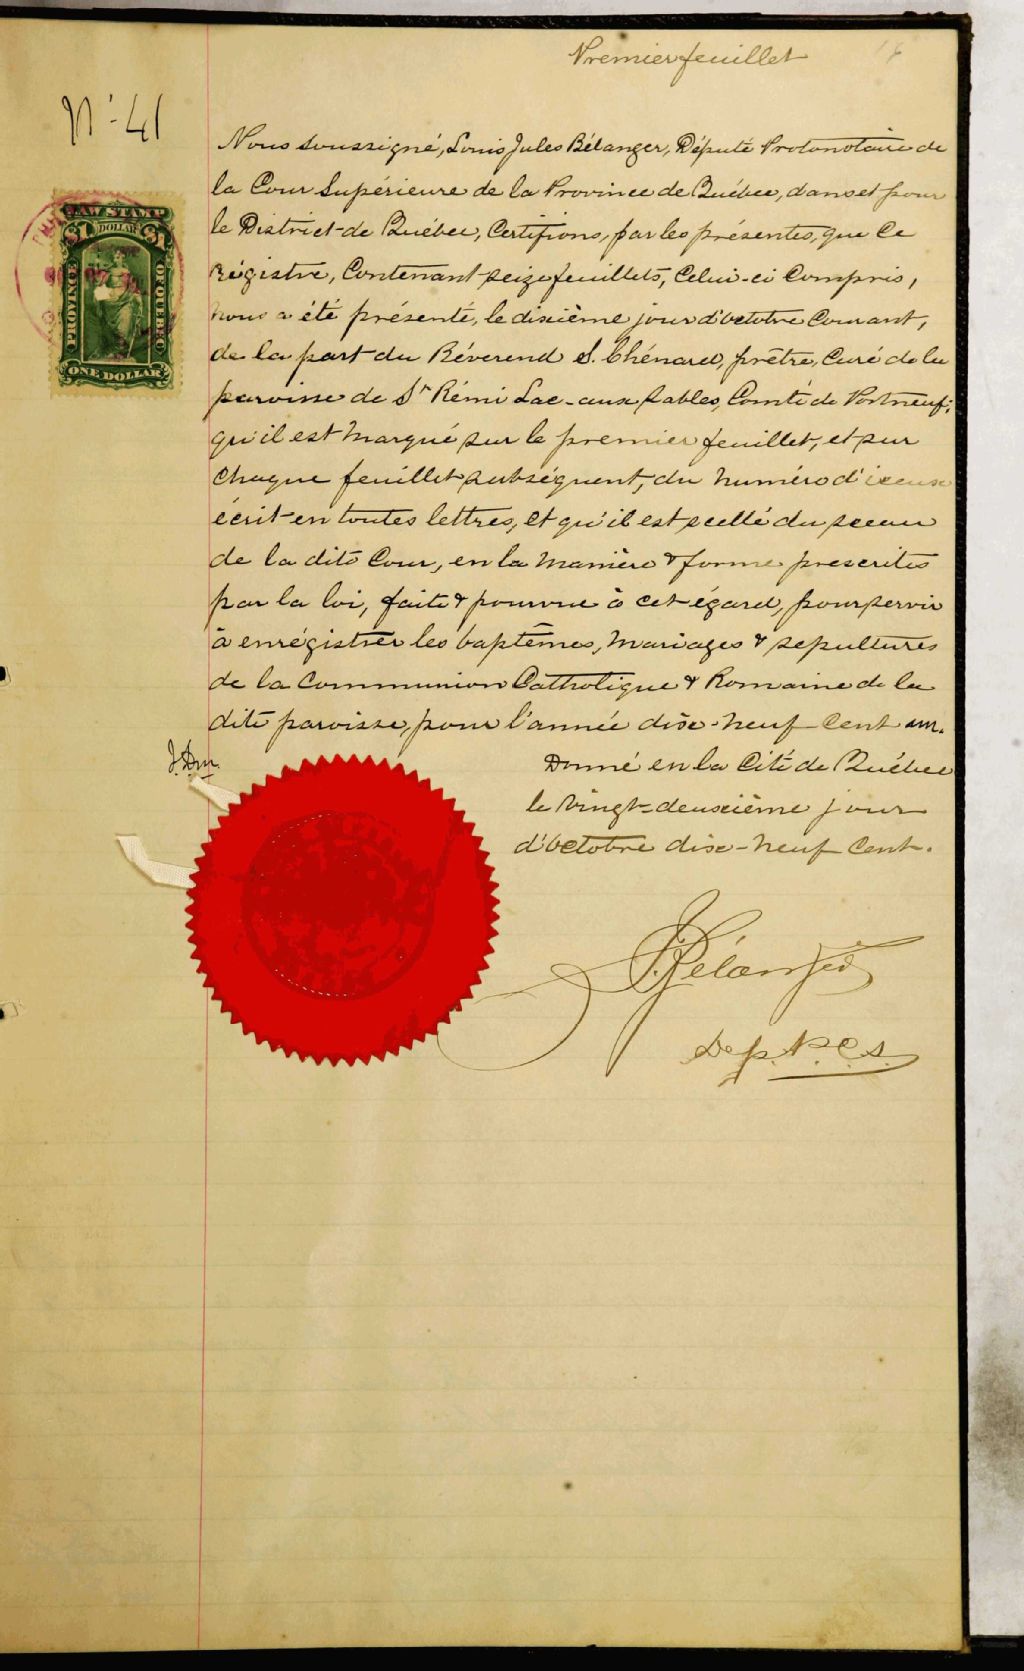 Premier feuillet
N° 41
LAW STAMP
$1 DOLLAR $1
PROVINCE
QUEBEC
ONE DOLLAR
Nous soussigné, Louis Jules Bélanger, Député Protonotaire de
la Cour Supérieure de la Province de Québec, dans et pour
le District de Québec, Certifions, par les présentes, que Ce
Régistre, Contenant seize feuillets, Celui-ci Compris,
nous a été présenté, le dixième jour d'octobre Courant,
de la part du Révérend S. Chénard, prêtre, Curé de la
paroisse de St Rémi Lac-aux Sables, Comté de Portneuf;
qu'il est marqué sur le premier feuillet, et sur
chaque feuillet subséquent, du numéro d'iceux
écrit en toutes lettres, et qu'il est scellé du sceau
de la dite Cour, en la manière & forme prescrites
par la loi, faite & pourvue à cet égard, pour servir
à enrégistrer les baptêmes, mariages & sepultures
de la Communion Catholique & Romaine de la
dite paroisse, pour l'année dix-neuf-cent un.
Donné en la Cité de Québec
le vingt-deuxième jour
d'octobre dix-neuf Cent.
J. Bélanger
Dep. P.C.S.